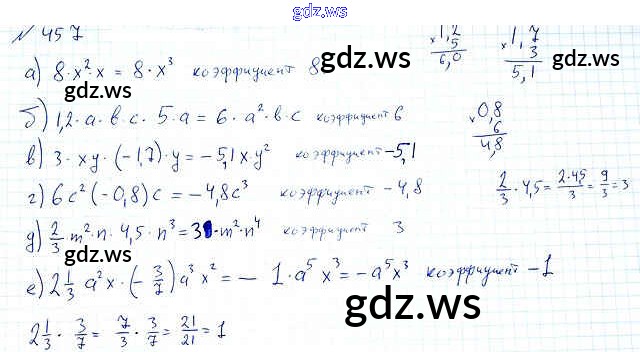 gdz.ws
№ 457
1,2
× 5
6,0
1,7
× 3
5,1
gdz.ws
а) 8·x²·x = 8·x³ коэффициент 8
gdz.ws
б) 1,2·a·b·c·5·a = 6·a²·b·c коэффициент 6
0,8
× 6
4,8
в) 3·xy·(-1,7)·y = -5,1x·y² коэффициент -5,1
г) 6c²(-0,8)c = -4,8c³ коэффициент -4,8
2/3·4,5 = 2·4,5/3 = 9/3 = 3
д) 2/3·m²·n·4,5·n³ = 3·m²·n⁴ коэффициент 3
gdz.ws
е) 2 1/3 a²x·(-3/7)a³x² = -1·a⁵x³ = -a⁵x³ коэффициент -1
gdz.ws
2 1/3·3/7 = 7/3·3/7 = 21/21 = 1